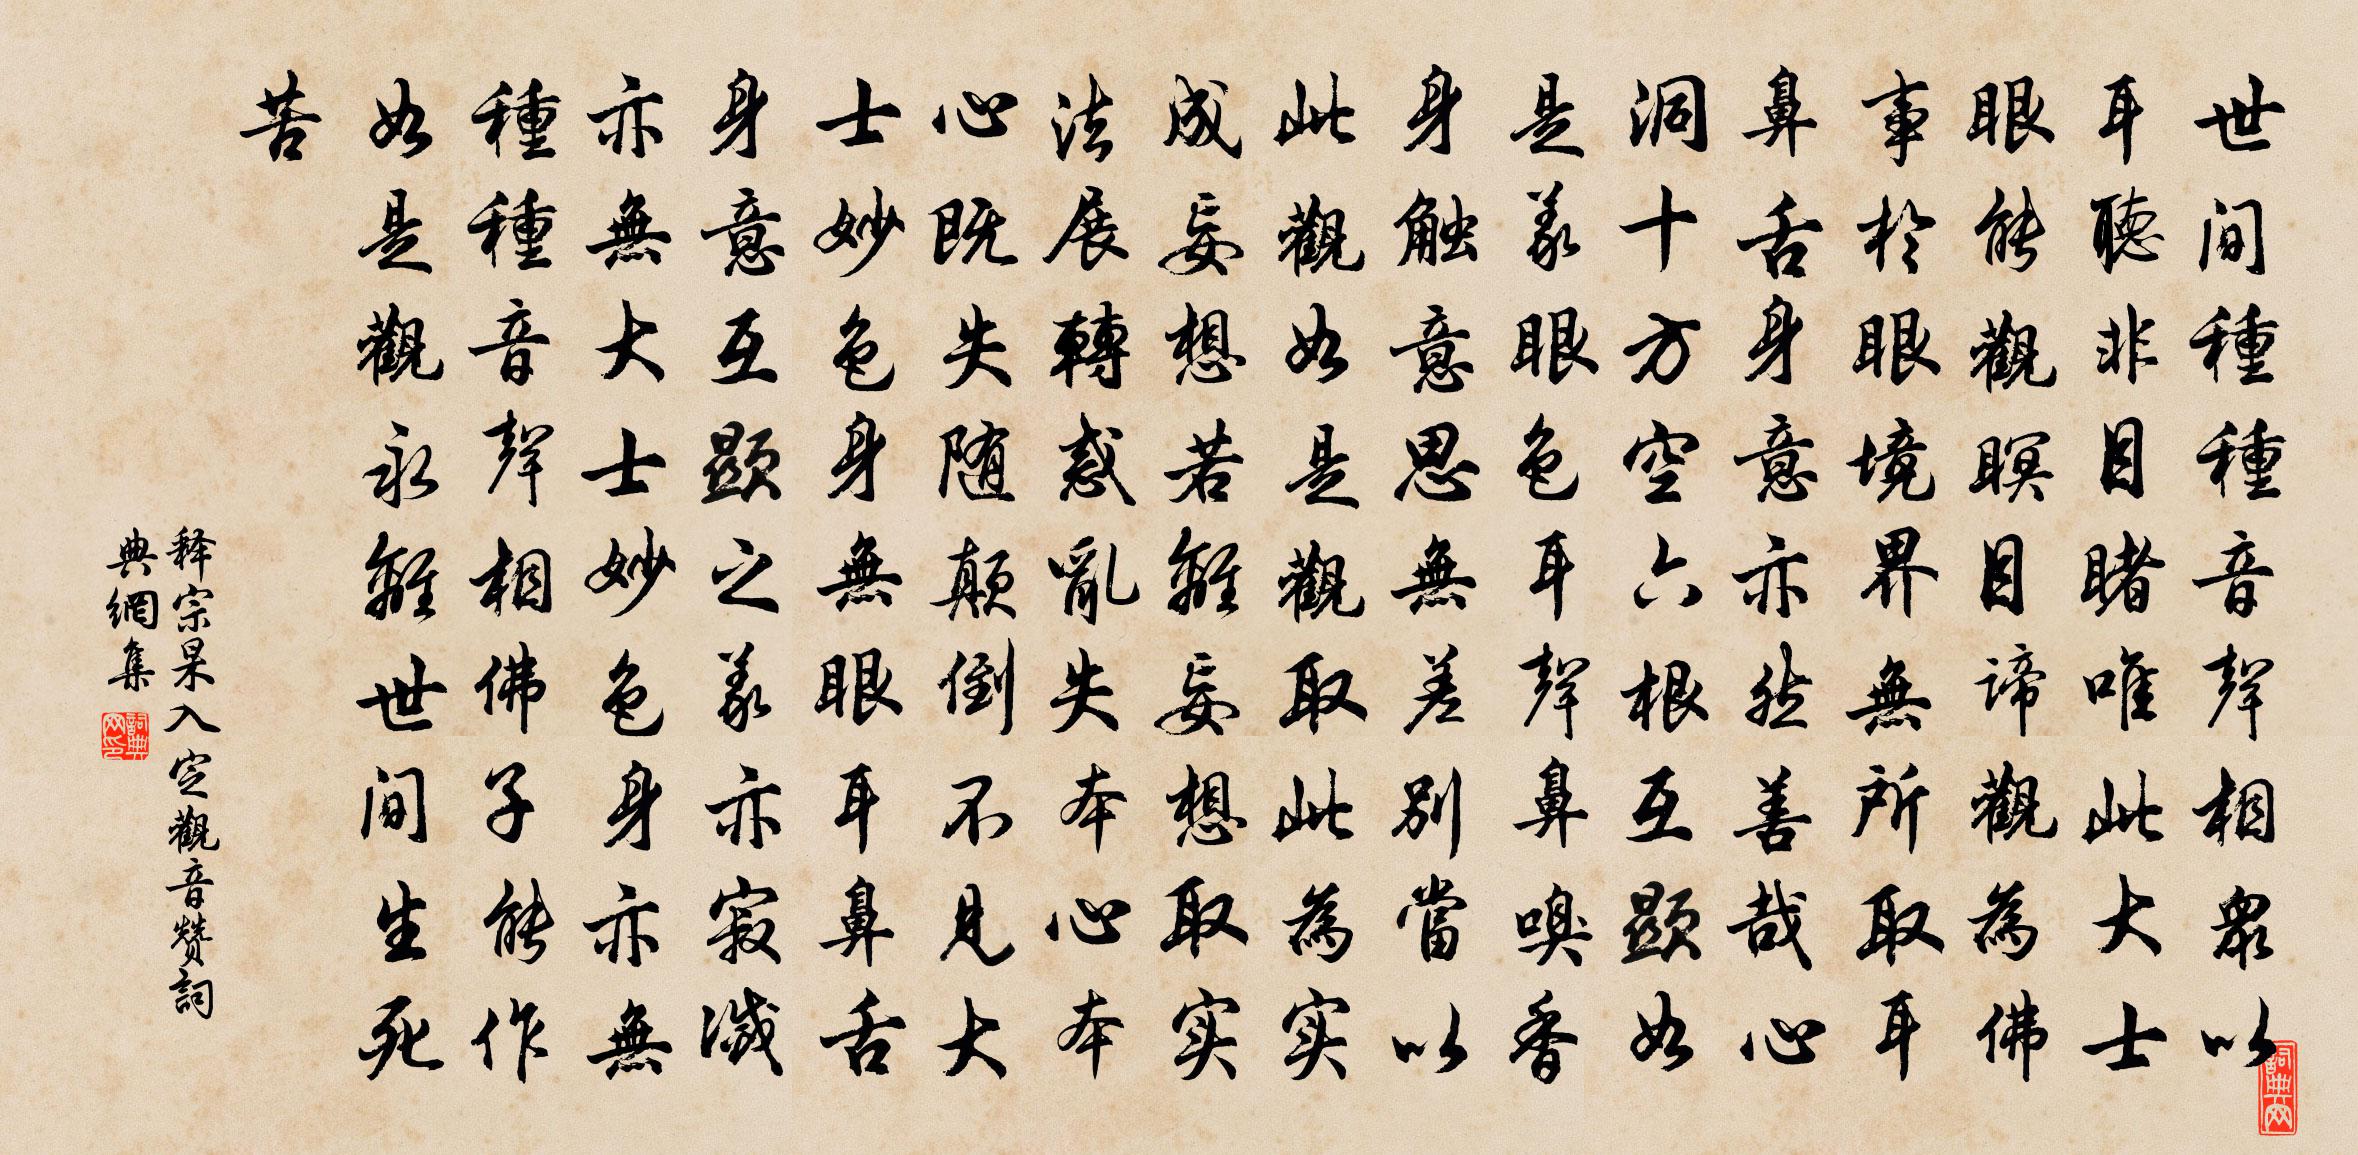 世间種種音聲相眾以
耳聽非目睹唯此大士
眼能觀瞑目諦觀為佛
事於眼境界無所取耳
鼻舌身意亦然善哉心
洞十方空六根互顯如
是義眼色耳聲鼻嗅香
身触意思無差别當以
此觀如是觀取此為实
成妄想若離妄想取实
法展轉惑亂失本心本
心既失随颠倒不見大
士妙色身無眼耳鼻舌
身意互顯之義亦寂滅
亦無大士妙色身亦無
種種音聲相佛子能作
如是觀永離世间生死
苦
释宗杲入定觀音赞詞
典網集
詞典网印
詞典网